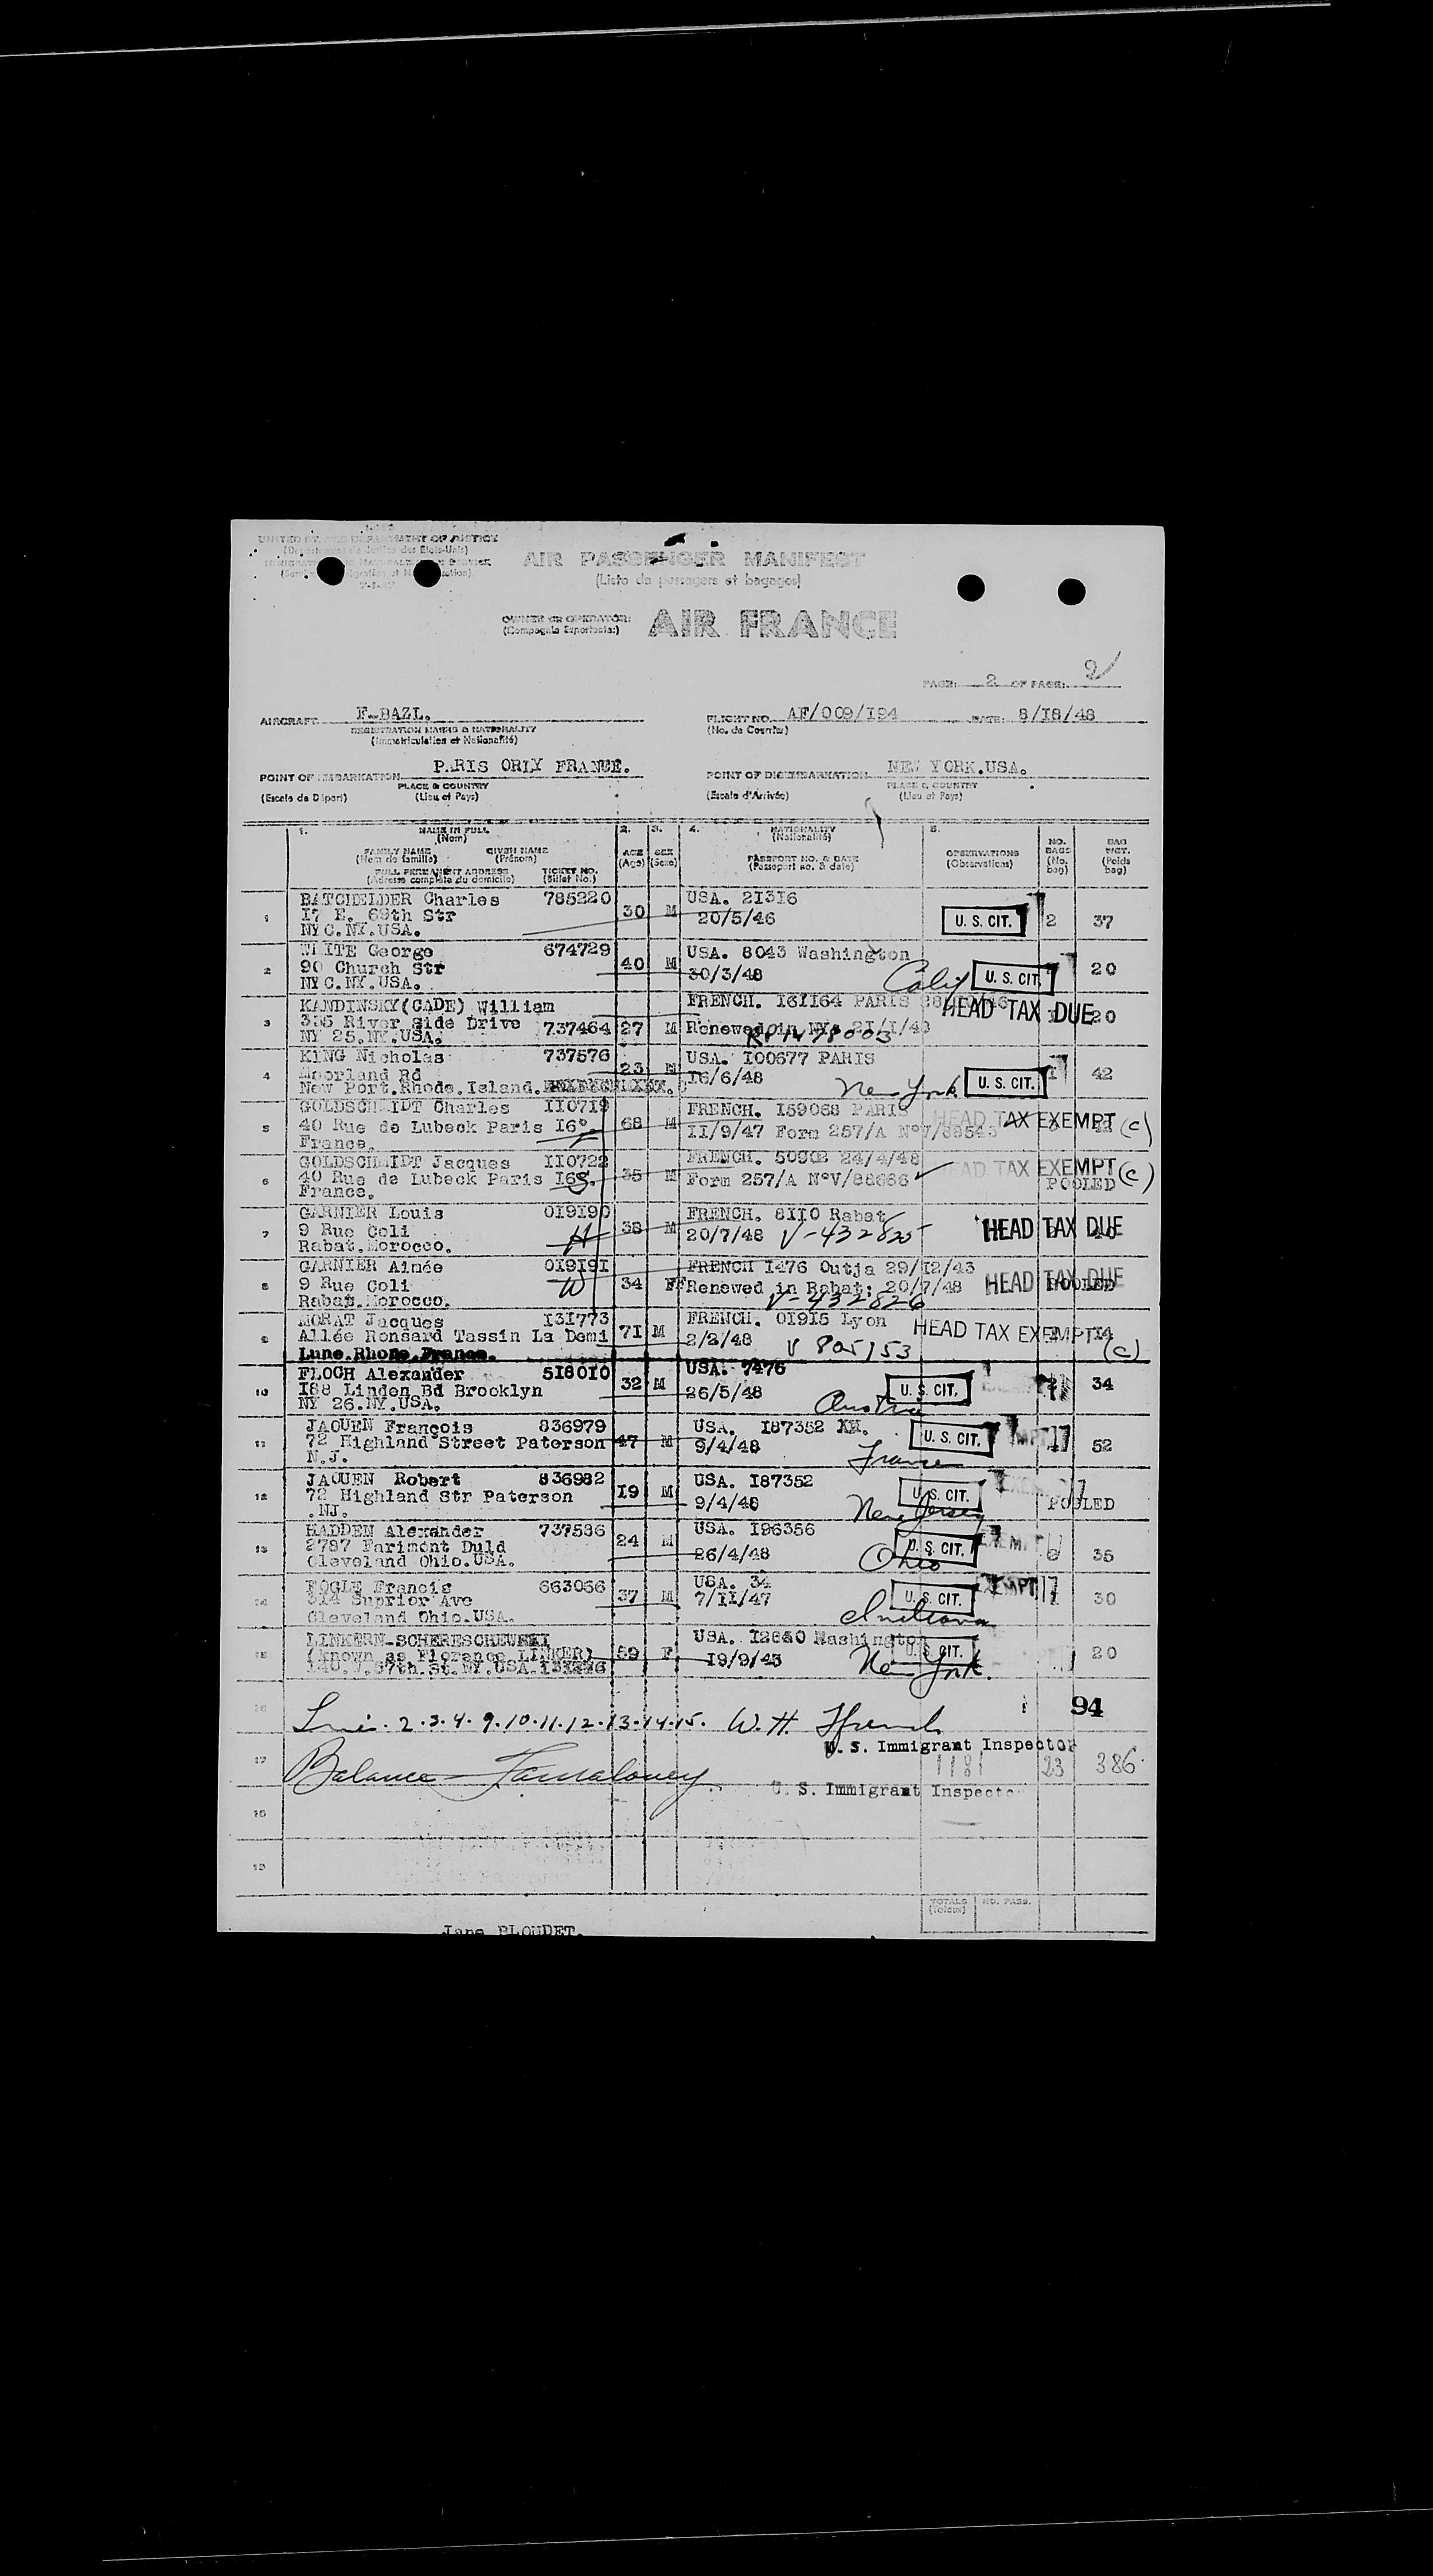 UNITED STATES DEPARTMENT OF JUSTICE
(Département de Justice des Etats-Unis)
AIR PASSENGER MANIFEST
(Liste de passagers et bagages)
OWNER OR OPERATOR:
AIR FRANCE
PAGE: 2 OF PAGE: 2
AIRCRAFT F-BAZL.
REGISTRATION MARKS & NATIONALITY
(Immatriculation et Nationalité)
FLIGHT NO. AF/009/I94 DATE: 8/I8/48
(No. de Courrier)
POINT OF EMBARKATION PARIS ORLY FRANCE.
PLACE & COUNTRY
(Escale de Départ) (Lieu et Pays)
POINT OF DISEMBARKATION NEW YORK.USA.
PLACE & COUNTRY
(Escale d'Arrivée) (Lieu et Pays)
1. NAME IN FULL
(Nom)
FAMILY NAME GIVEN NAME
(Nom de famille) (Prénom)
FULL PERMANENT ADDRESS TICKET NO.
(Adresse complète du domicile) (Billet No.)
2. AGE (Age)
3. SEX (Sexe)
4. NATIONALITY
(Nationalité)
PASSPORT NO. & DATE
(Passeport no. & date)
5. OBSERVATIONS
(Observations)
NO. BAGS (No. bag)
BAG WGT. (Poids bag)
1 BATCHELDER Charles 785220 30 M USA. 2I3I6
I7 E. 69th Str 20/5/46 U. S. CIT. 2 37
NYC.NY.USA.
2 WHITE George 674729 40 M USA. 8043 Washington
90 Church Str 30/3/48 Calif U. S. CIT. 20
NYC.NY.USA.
3 KANDINSKY(CADE) William FRENCH. I6II64 PARIS
River Side Drive 737464 27 M Renewed in NY. HEAD TAX DUE 20
NY 25.NY.USA.
4 KING Nicholas 737576 23 M USA. I00677 PARIS
Moorland Rd I6/6/48 New York U. S. CIT. 1 42
New Port.Rhode.Island.
5 GOLDSCHMIDT Charles II07I9 68 M FRENCH. I59068 PARIS
40 Rue de Lubeck Paris I6°. II/9/47 Form 257/A N°V/88543 HEAD TAX EXEMPT (c)
France.
6 GOLDSCHMIDT Jacques II0722 35 M FRENCH. 24/4/48
40 Rue de Lubeck Paris I6 Form 257/A N°V/88686 HEAD TAX EXEMPT (c)
France. POOLED
7 GARNIER Louis 0I9I90 38 M FRENCH. 8II0 Rabat
9 Rue Coli H 20/7/48 V-432825 HEAD TAX DUE
Rabat.Morocco.
8 GARNIER Aimée 0I9I9I 34 F FRENCH I476 Outja 29/I2/43
9 Rue Coli W Renewed in Rabat: 20/7/48 HEAD TAX DUE POOLED
Rabat.Morocco. V-432826
9 MORAT Jacques I3I773 7I M FRENCH. 0I9I5 Lyon
Allée Ronsard Tassin La Demi 2/2/48 V 805153 HEAD TAX EXEMPT (c) 14
Lune.Rhone.France.
10 FLOCH Alexander 5I80I0 32 M USA. 7476
I88 Linden Bd Brooklyn 26/5/48 Austria U. S. CIT. 34
NY 26.NY.USA.
11 JAOUEN François 836979 47 M USA. I87352
72 Highland Street Paterson 9/4/48 France U. S. CIT. 52
N.J.
12 JAOUEN Robert 836982 I9 M USA. I87352
72 Highland Str Paterson 9/4/48 New Jersey U. S. CIT. POOLED
.NJ.
13 HADDEN Alexander 737586 24 M USA. I96356
2787 Farimont Duld 26/4/48 Ohio U. S. CIT. 35
Cleveland Ohio.USA.
14 FOGLE Francis 663066 37 M USA. 34
3I4 Suprior Ave 7/II/47 Indiana U. S. CIT. EXEMPT 1 30
Cleveland Ohio.USA.
15 LINKERN-SCHERESCHEWSKI 59 F USA. Washington
(known as Florence LINKER) New York. U. S. CIT. 20
I40.W.57th.St.NY.USA.
16 2.3.4.9.10.11.12.13.14.15. W. H. 94
U. S. Immigrant Inspector
17 Balance 1181 23 386
U. S. Immigrant Inspector
18
19
TOTALS NO. PASS.
(Totaux)
Jane PLOUDET.